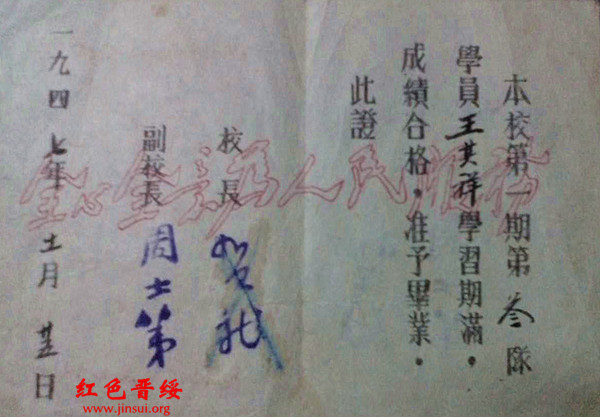 本校第一期第叁隊
學員王其祥學習期滿，
成績合格，准予畢業。
此證
校長 贺龙
副校長 周士第
一九四七年十一月廿五日
全心全意為人民服務
红色晋绥
www.jinsui.org